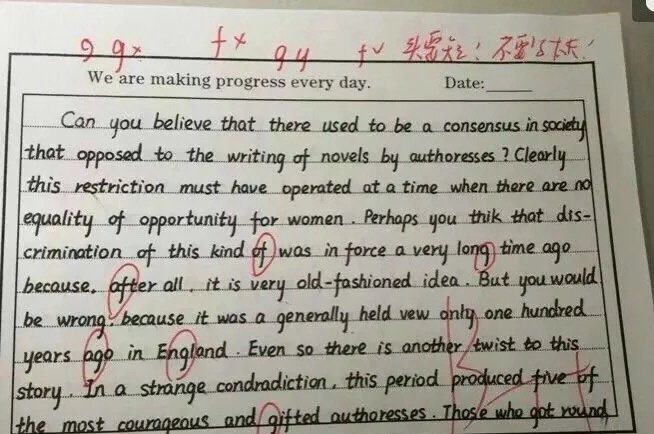 g g× f× g y f✓ 头需短！不需写太长！
We are making progress every day. Date:
Can you believe that there used to be a consensus in society
that opposed to the writing of novels by authoresses? Clearly
this restriction must have operated at a time when there are no
equality of opportunity for women. Perhaps you thik that dis-
crimination of this kind of was in force a very long time ago
because, after all, it is very old-fashioned idea. But you would
be wrong, because it was a generally held vew only one hundred
years ago in England. Even so there is another twist to this
story. In a strange condradiction, this period produced five of
the most courageous and gifted authoresses. Those who got round